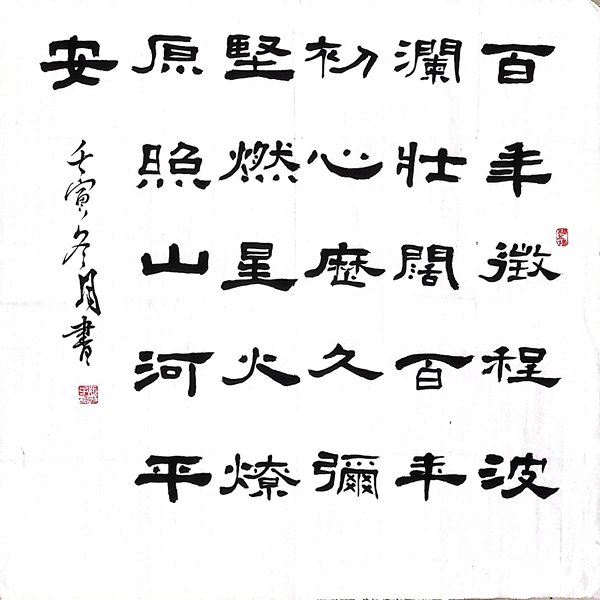 百年徵程波
瀾壯闊百年
初心歷久彌
堅燃星火燎
原照山河平
安
壬寅冬月書